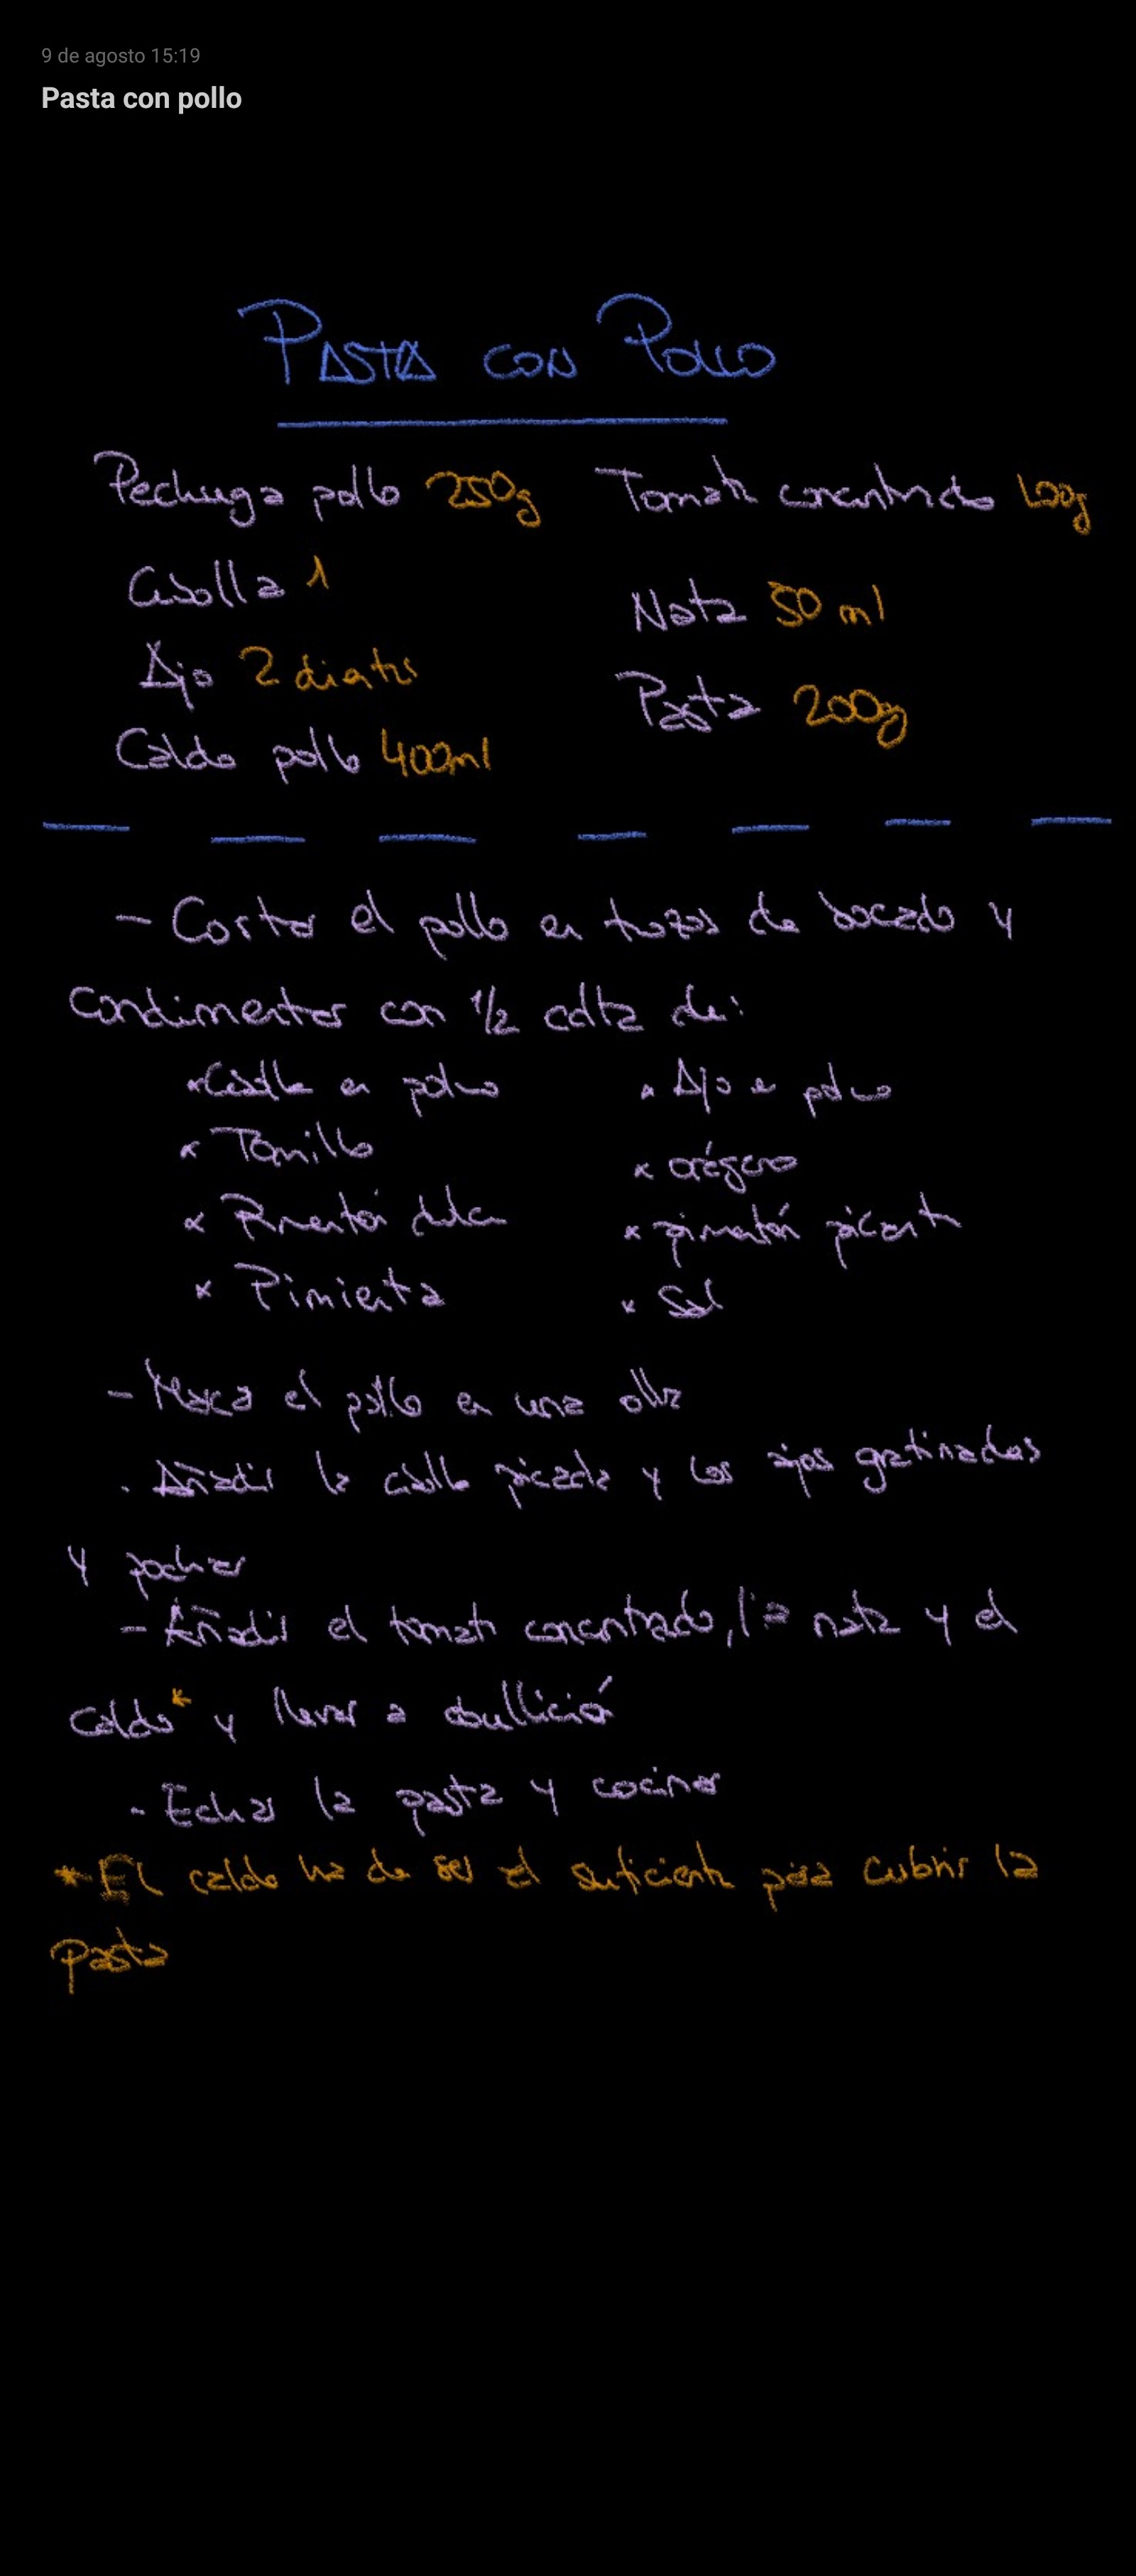 9 de agosto 15:19
Pasta con pollo
PASTA CON POLLO
Pechuga pollo 250g
Cebolla 1
Ajo 2 dientes
Caldo pollo 400ml
Tomate concentrado 100g
Nata 50 ml
Pasta 200g
- Cortar el pollo en trozos de bocado y
condimentar con 1/2 cdta de:
x Cebolla en polvo
x Tomillo
x Pimentón dulce
x Pimienta
x Ajo en polvo
x orégano
x pimentón picante
x Sal
- Marca el pollo en una olla
. Añadir la cebolla picada y los ajos gratinados
y pochar
- Añadir el tomate concentrado, la nata y el
caldo* y llevar a ebullició
- Echar la pasta y cocinar
* El caldo ha de ser el suficiente para cubrir la
pasta